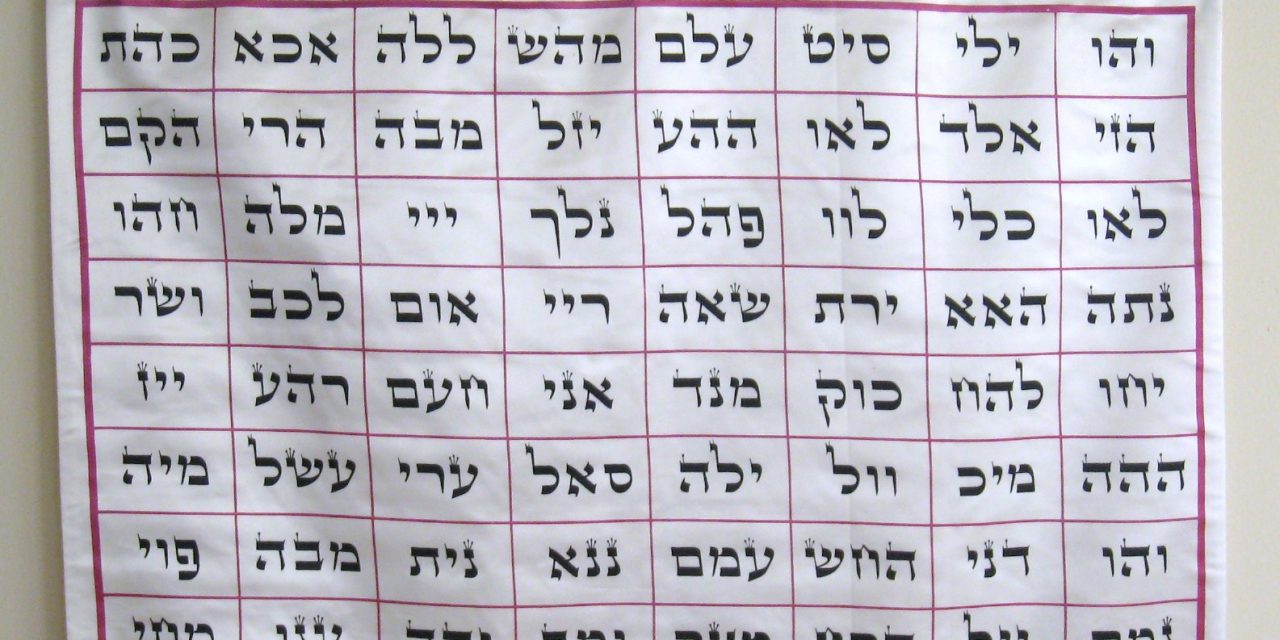 והו ילי סיט עלם מהש ללה אכא כהת
הזי אלד לאו ההע יזל מבה הרי הקם
לאו כלי לוו פהל נלך ייי מלה חהו
נתה האא ירת שאה ריי אום לכב ושר
יחו להח כוק מנד אני חעם רהע ייז
ההה מיכ וול ילה סאל ערי עשל מיה
והו דני החש עמם ננא נית מבה פוי